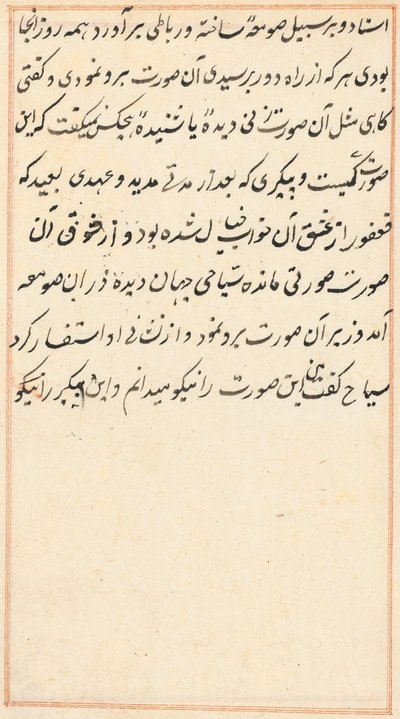 استاد و بر سبیل صومعهٔ ساخته و رباطی برآورد همه روز آنجا
بودی هر که از راه دور برسیدی آن صورت برو نمودی و گفتی
کاهی مثل آن صورت زنی دیدهٔ یا شنیدهٔ هیچکس نمیگفت که این
صورت کیست و پیکری که بعد از مدتے مدید و عهدی بعید که
فغفور از عشق آن خواب خیال شده بود و از شوق آن
صورت صورتی مانده سیّاحی جهان دیده در ان صومعه
آمد وزیر آن صورت برو نمود و از نشانے او استفسار کرد
سیاح گفت من این صورت را نیکو میدانم و این پیکر را نیکو